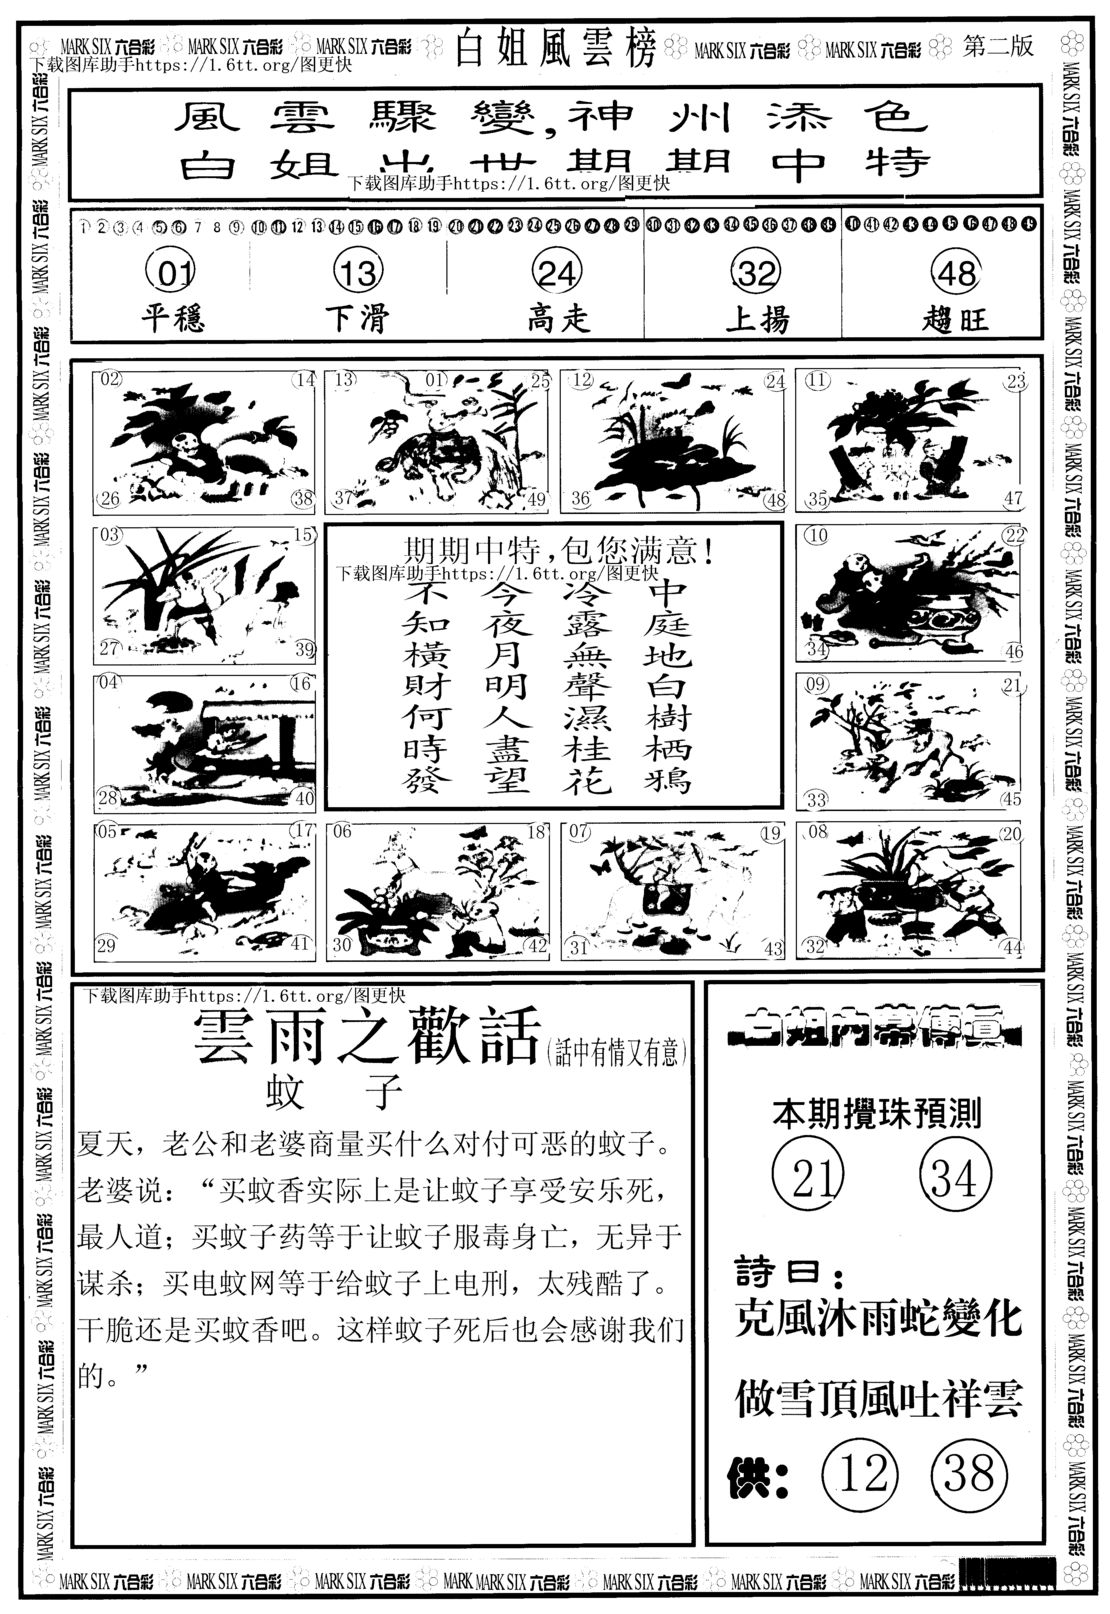 MARK SIX 六合彩 MARK SIX 六合彩 MARK SIX 六合彩 白姐風雲榜 MARK SIX 六合彩 MARK SIX 六合彩 第二版
下载图库助手https://1.6tt.org/图更快
風雲驟變,神州添色
白姐出世期期中特
下载图库助手https://1.6tt.org/图更快
1 2 3 4 5 6 7 8 9 10 11 12 13 14 15 16 17 18 19 20 21 22 23 24 25 26 27 28 29 30 31 32 33 34 35 36 37 38 39 40 41 42 43 44 45 46 47 48 49
01 13 24 32 48
平穩 下滑 高走 上揚 趨旺
02 14 13 01 25 12 24 11 23
26 38 37 49 36 48 35 47
03 15 10 22
27 39 34 46
04 16 09 21
28 40 33 45
期期中特,包您满意!
下载图库助手https://1.6tt.org/图更快
中庭地白樹栖鴉
冷露無聲濕桂花
今夜月明人盡望
不知橫財何時發
05 17 06 18 07 19 08 20
29 41 30 42 31 43 32 44
下载图库助手https://1.6tt.org/图更快
雲雨之歡話(話中有情又有意)
蚊 子
夏天，老公和老婆商量买什么对付可恶的蚊子。
老婆说：“买蚊香实际上是让蚊子享受安乐死，
最人道；买蚊子药等于让蚊子服毒身亡，无异于
谋杀；买电蚊网等于给蚊子上电刑，太残酷了。
干脆还是买蚊香吧。这样蚊子死后也会感谢我们
的。”
白姐内幕傳真
本期攪珠預測
21 34
詩曰：
克風沐雨蛇變化
做雪頂風吐祥雲
供: 12 38
MARK SIX 六合彩 MARK SIX 六合彩 MARK SIX 六合彩 MARK MARK SIX 六合彩 MARK SIX 六合彩 MARK SIX 六合彩 MARK SIX 六合彩